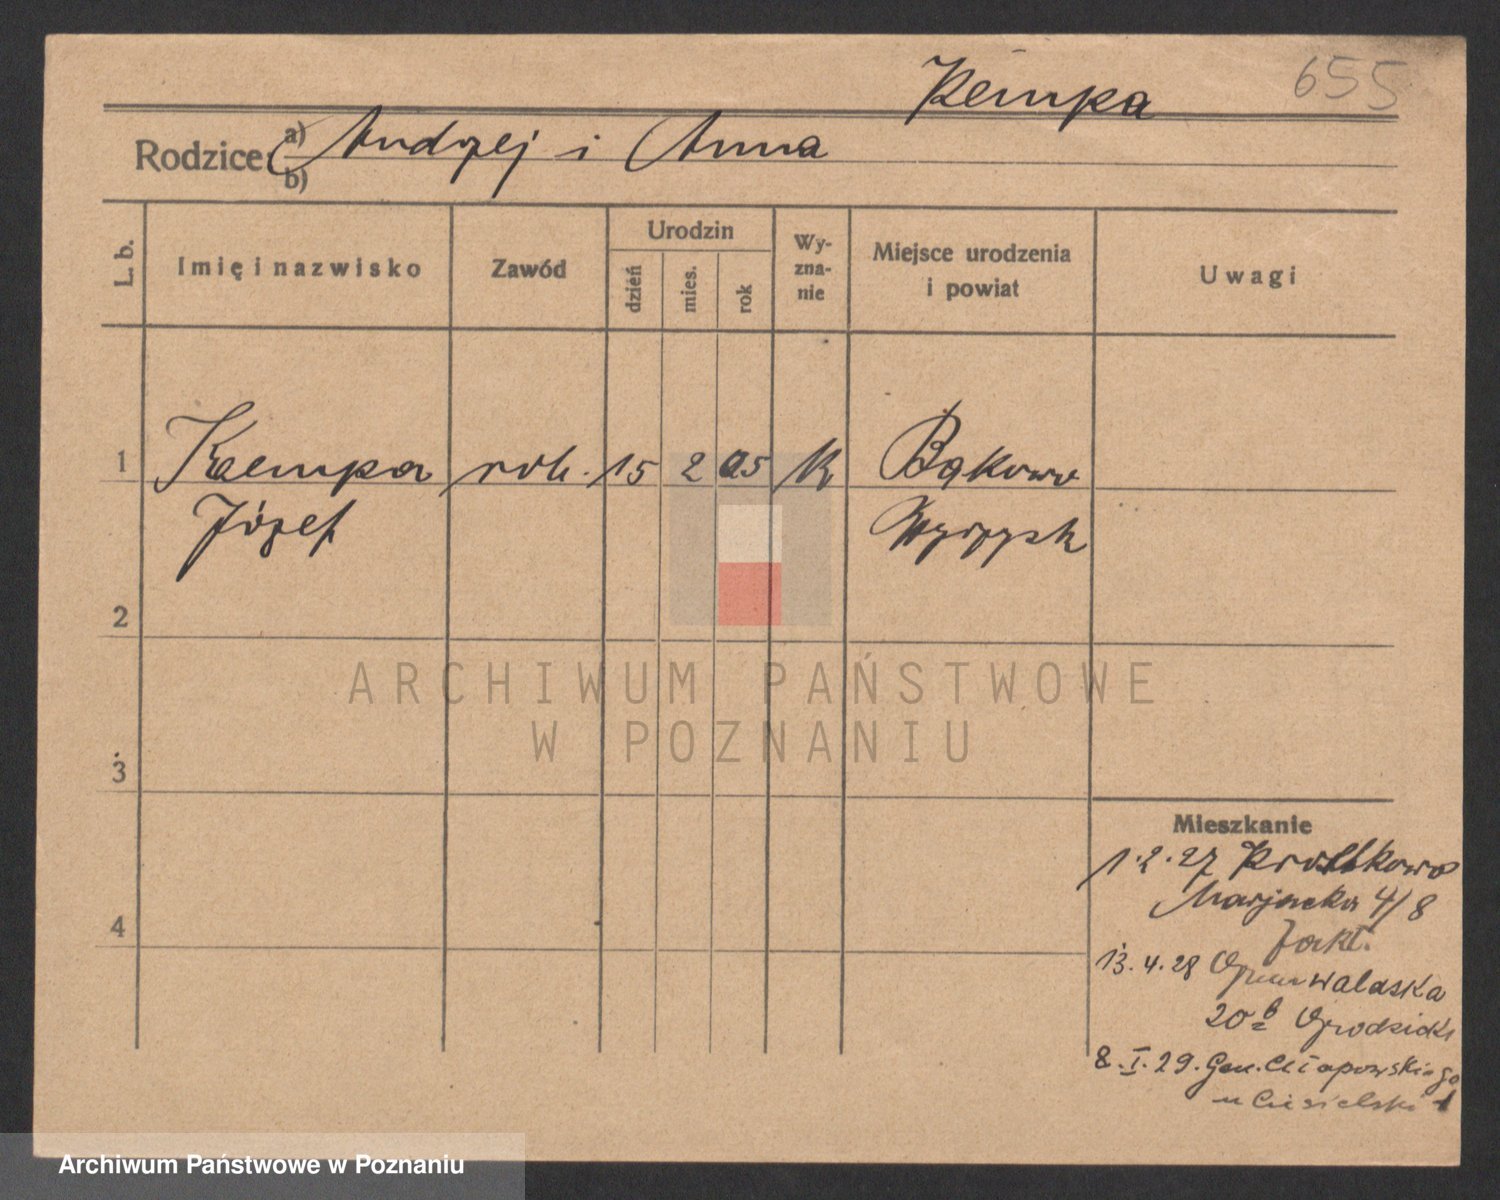 Kempa 655
Rodzice: a) Andrzej i Anna
b)
L. b. Imię i nazwisko Zawód Urodzin dzień mies. rok Wyznanie Miejsce urodzenia i powiat Uwagi
1 Kaempa rob. 15 2 05 K Bąkowo
Józef Wyrzysk
2
3
4
Mieszkanie
1.2.27
4/8
13.4.28
20 b
8.I.29. Gen. Chłapowskiego
u Ciesielski
ARCHIWUM PAŃSTWOWE
W POZNANIU
Archiwum Państwowe w Poznaniu